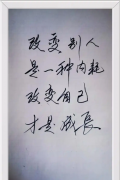 改变别人
是一种内耗
改变自己
才是成長